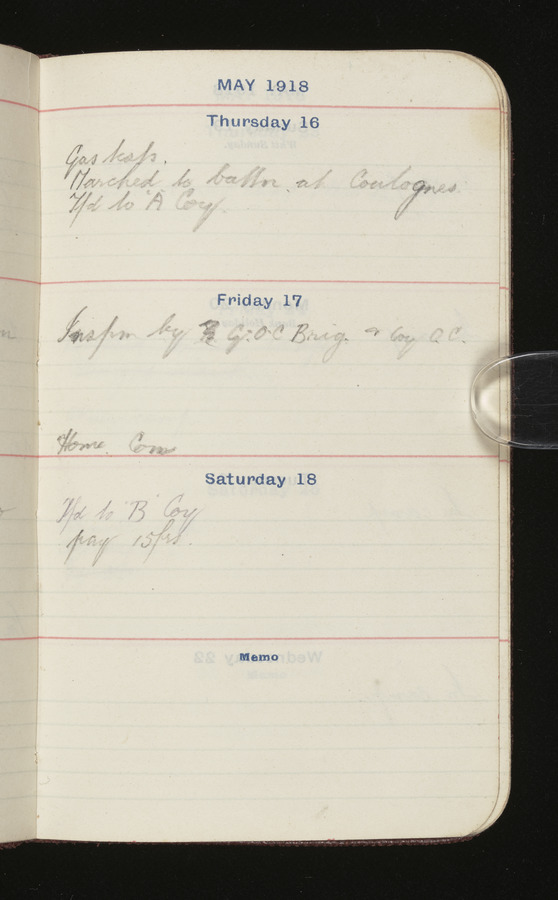 MAY 1918
Thursday 16
Gas test.
Marched to battn. at Coulognes
T/d to "A" Coy.
Friday 17
Inspn by G.O.C Brig. & Coy O C.
Home. Com
Saturday 18
T/d to "B" Coy
pay 15frs.
Memo